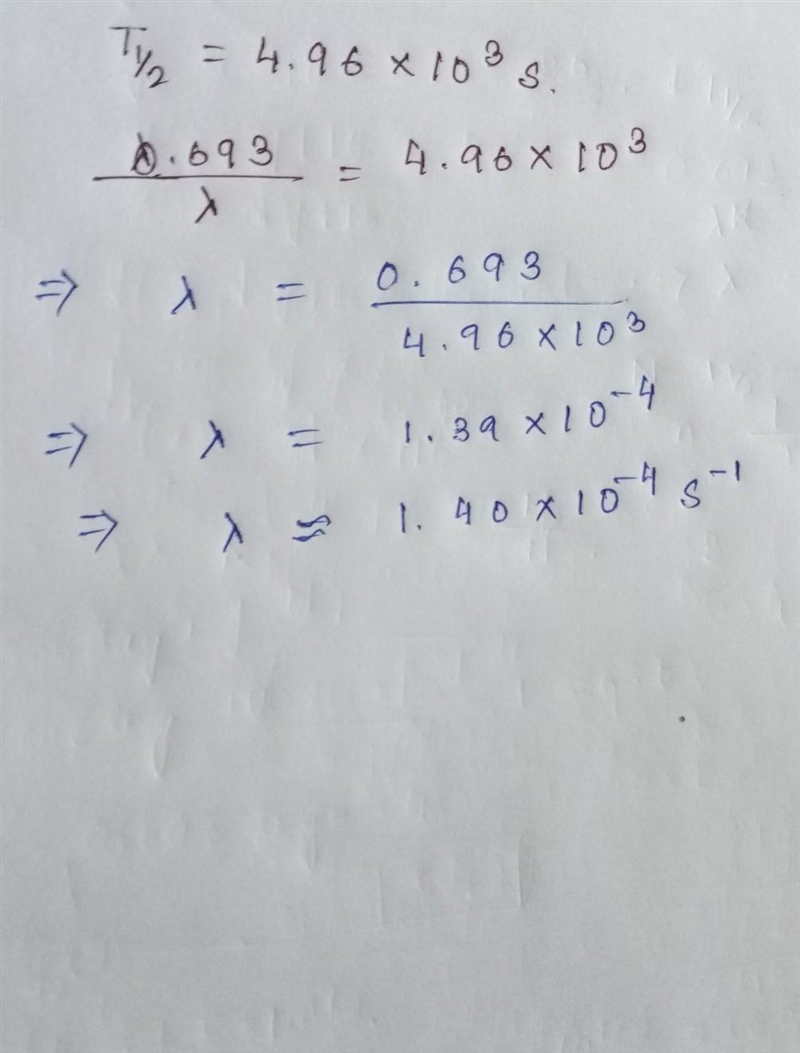 T½ = 4.96 × 10³ s.
0.693/λ = 4.96 × 10³
⇒ λ = 0.693/4.96 × 10³
⇒ λ = 1.39 × 10⁻⁴
⇒ λ ≈ 1.40 × 10⁻⁴ s⁻¹